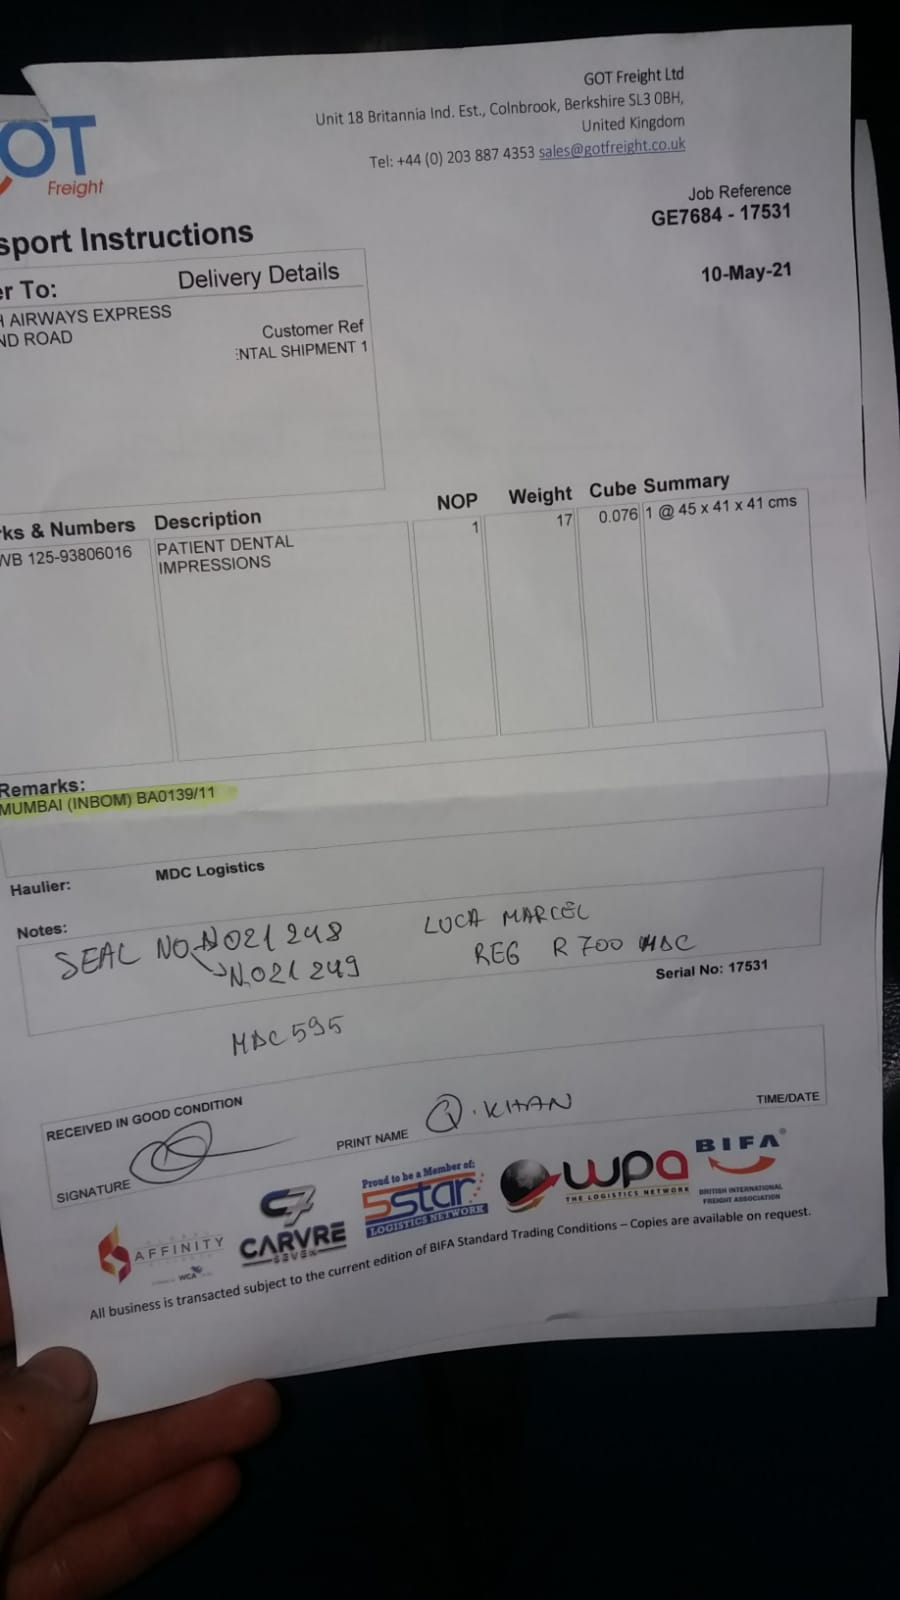 OT
Freight
GOT Freight Ltd
Unit 18 Britannia Ind. Est., Colnbrook, Berkshire SL3 0BH,
United Kingdom
Tel: +44 (0) 203 887 4353 sales@gotfreight.co.uk
Job Reference
GE7684 - 17531
10-May-21
sport Instructions
er To:
Delivery Details
H AIRWAYS EXPRESS
ND ROAD
Customer Ref
ENTAL SHIPMENT 1
rks & Numbers Description NOP Weight Cube Summary
WB 125-93806016 PATIENT DENTAL 1 17 0.076 1 @ 45 x 41 x 41 cms
IMPRESSIONS
Remarks:
MUMBAI (INBOM) BA0139/11
Haulier: MDC Logistics
Notes:
SEAL NO. N021248
N021249
LUCA MARCEL
REG R700 MDC
Serial No: 17531
MDC595
RECEIVED IN GOOD CONDITION
SIGNATURE
PRINT NAME Q. KHAN
TIME/DATE
AFFINITY
WCA
C7
CARVRE
SEVEN
Proud to be a Member of:
5star
LOGISTICS NETWORK
wpa
THE LOGISTICS NETWORK
BIFA
BRITISH INTERNATIONAL
FREIGHT ASSOCIATION
All business is transacted subject to the current edition of BIFA Standard Trading Conditions – Copies are available on request.